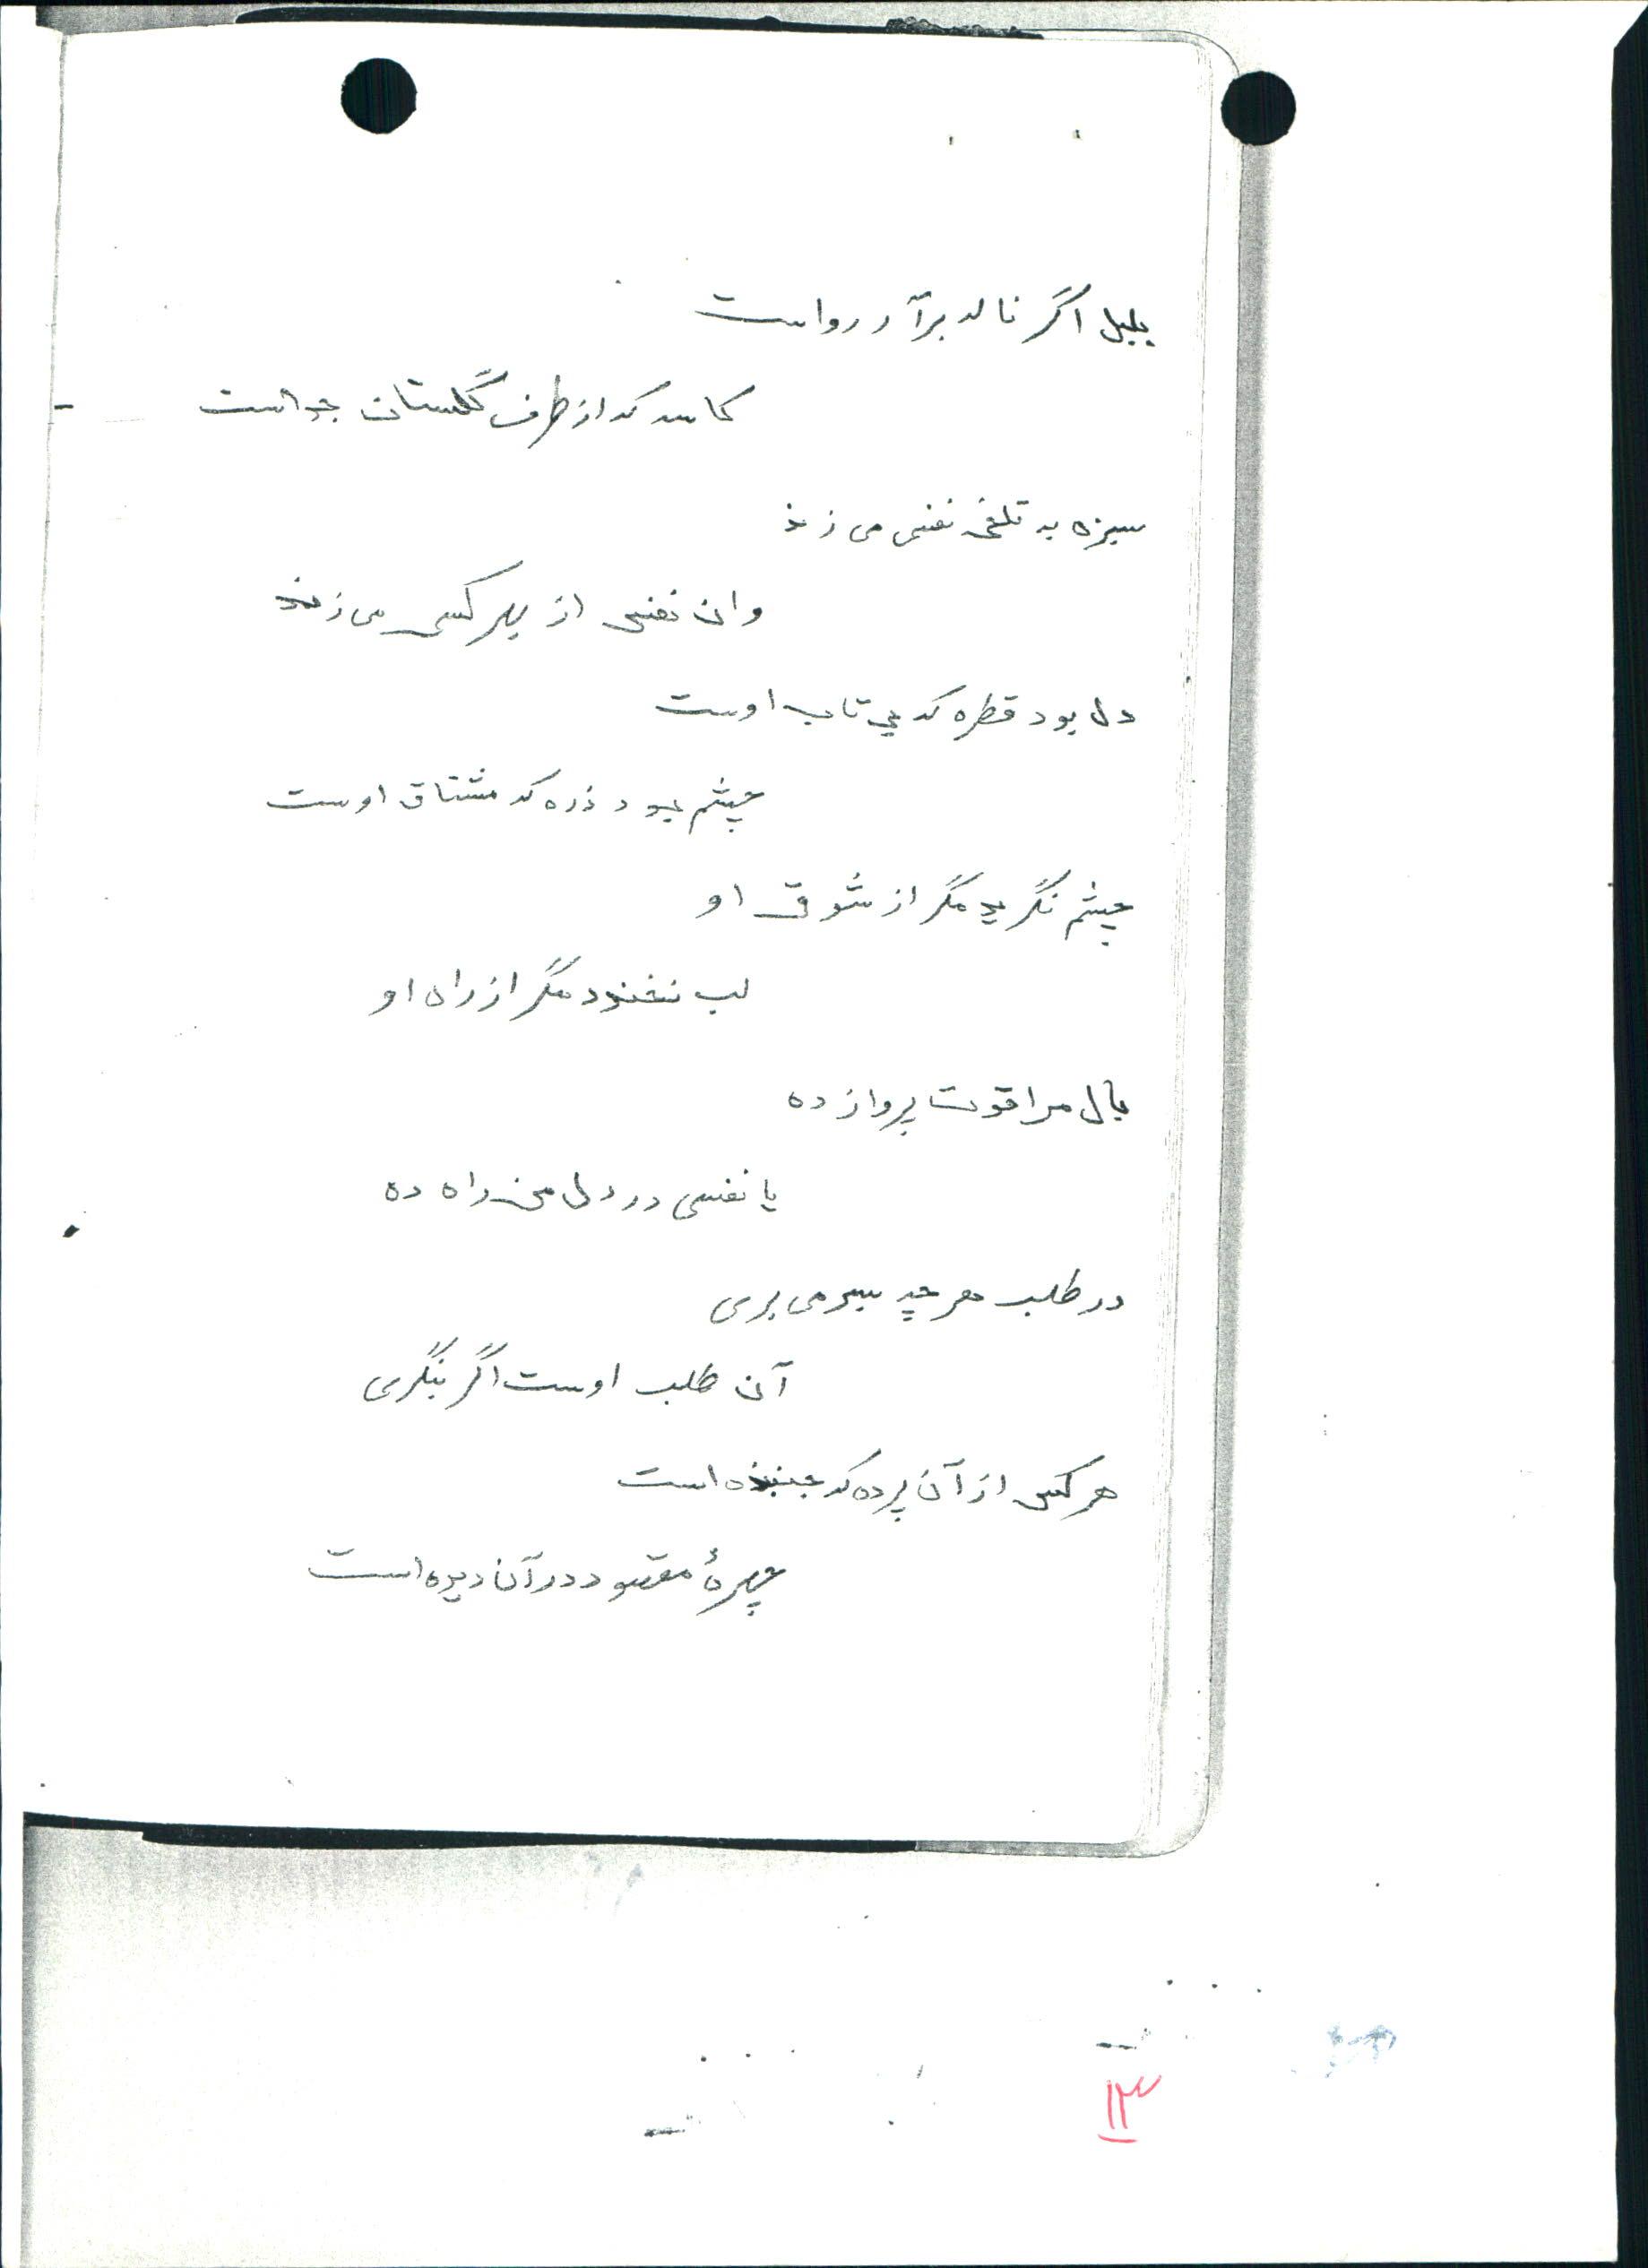 بلبل اگر ناله برآرد رواست
که از طرف گلستان جداست
سبزه به تلخی نفسی می زند
وان نفس از بهر کسی می زند
دل بود قطره که بی تاب اوست
چشم بود ذره که مشتاق اوست
چشم نگرید مگر از شوق او
لب نخندد مگر از راه او
بال مرا قوت پرواز ده
یا نفسی در دل من راه ده
در طلب هر چه بسر می بری
آن طلب اوست اگر بنگری
هر کس از آن پرده که جنبیده است
چهرهٔ مقصود در آن دیده است
۱۳